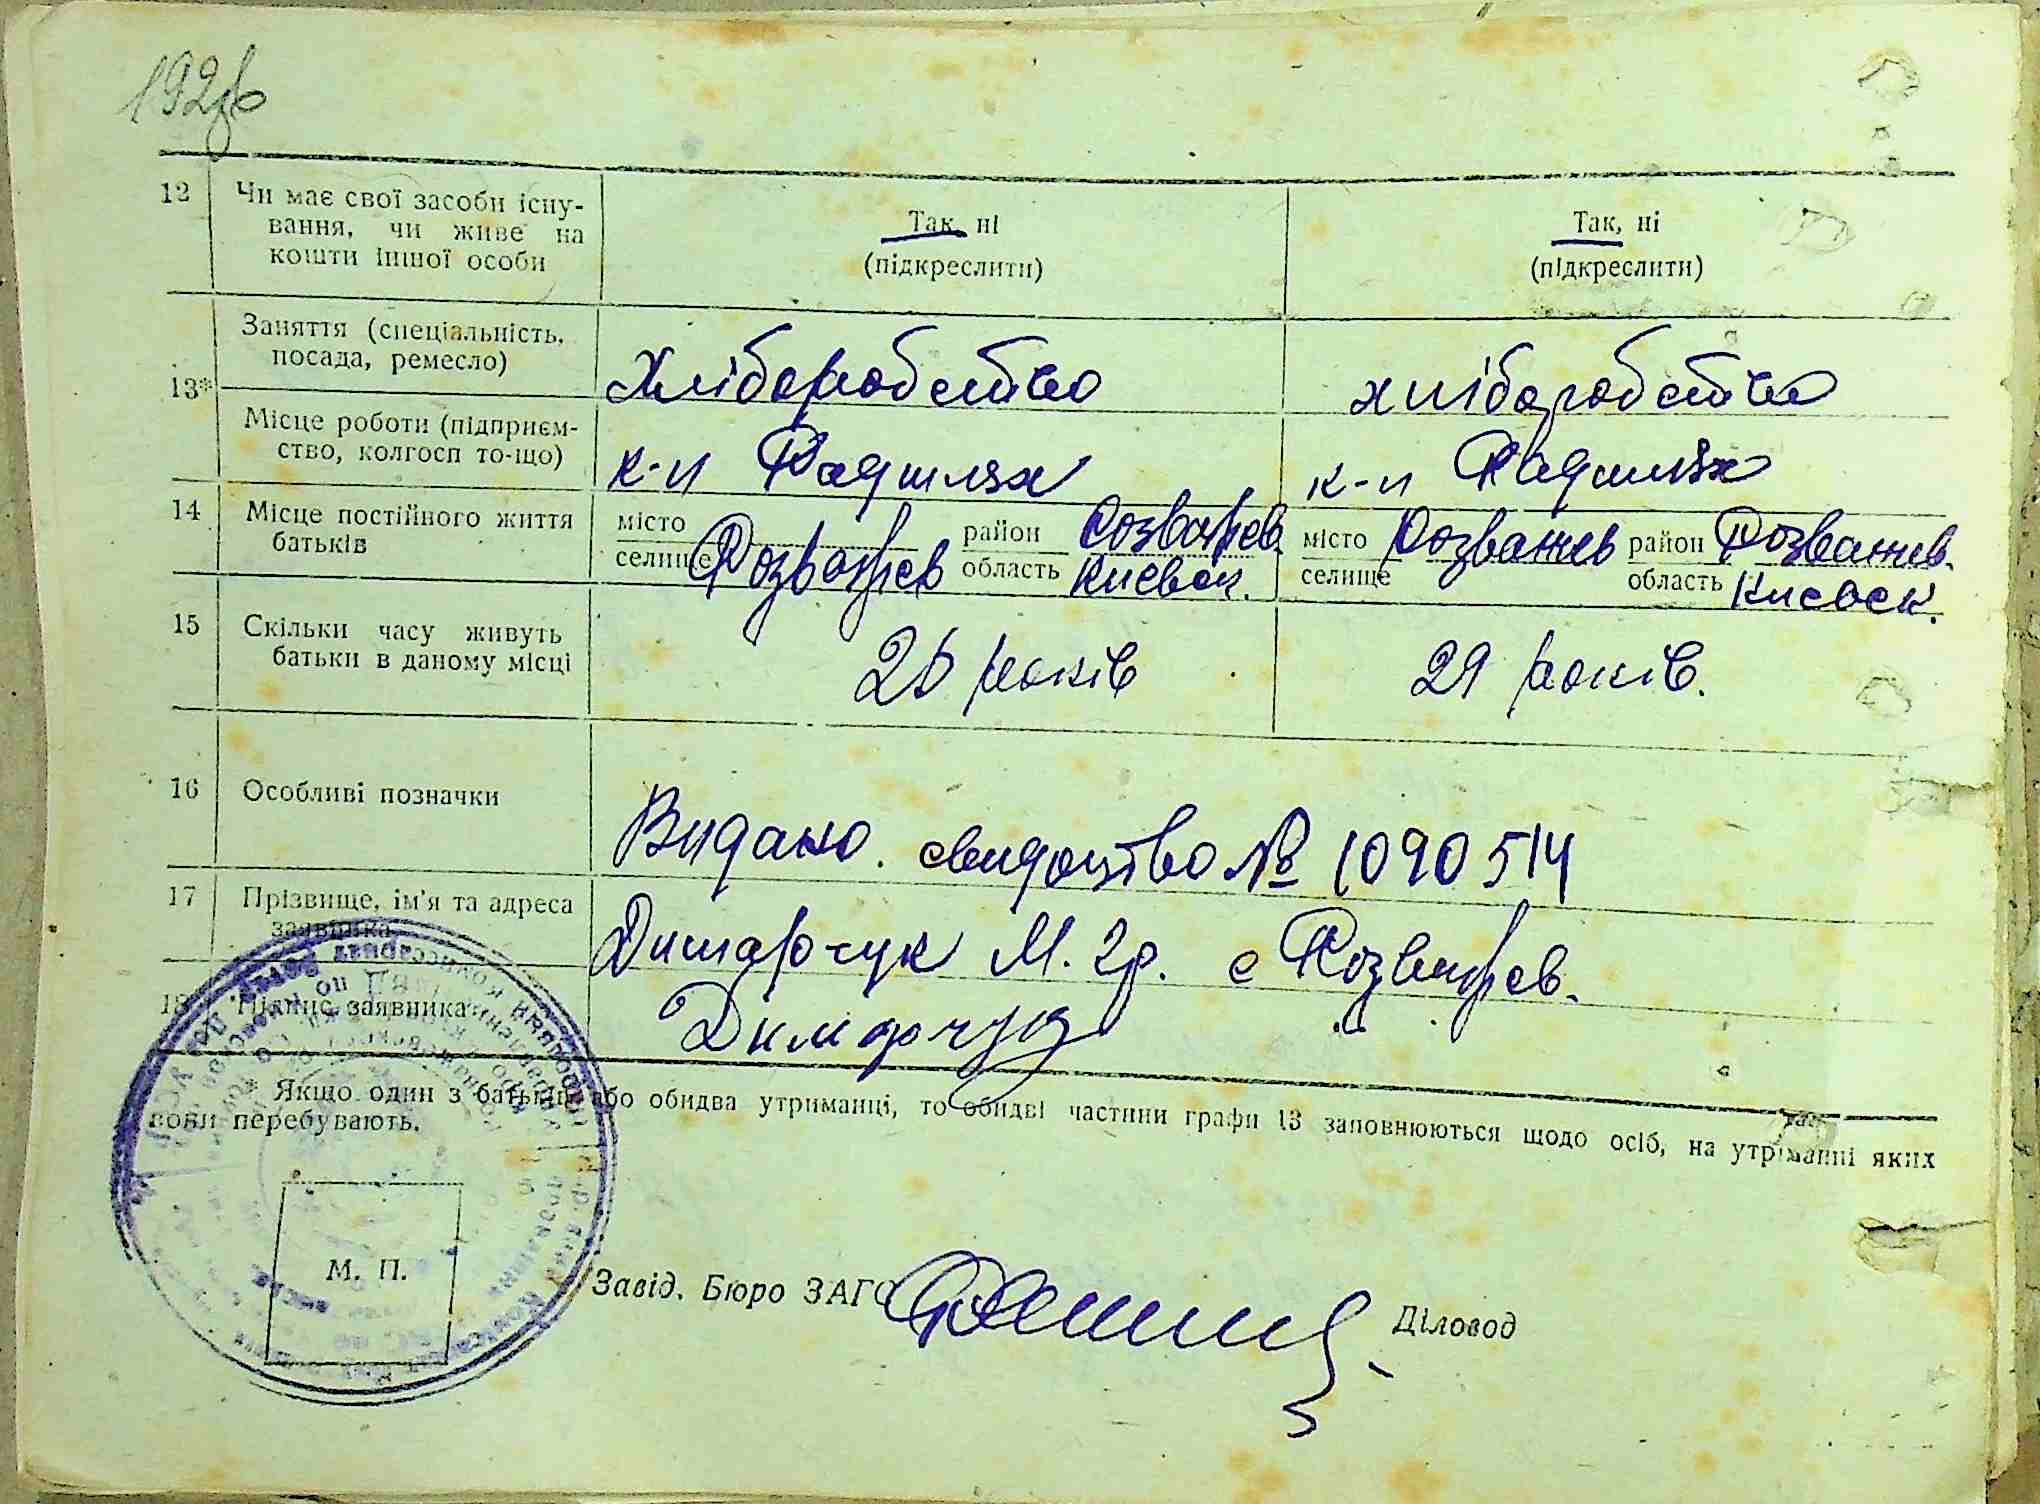 192зв
12 Чи має свої засоби існу-
вання, чи живе на
кошти іншої особи
Так, ні
(підкреслити)
Так, ні
(підкреслити)
13* Заняття (спеціальність,
посада, ремесло)
Хліборобство
хліборобство
Місце роботи (підприєм-
ство, колгосп то-що)
к-п Радшлях
к-п Радшлях
14 Місце постійного життя
батьків
місто
селище Розважев
район Розважев.
область Киевск.
місто Розважев
селище
район Розважев.
область Киевск.
15 Скільки часу живуть
батьки в даному місці
26 років
29 років.
16 Особливі позначки
Видано. свидоцтво № 1090514
17 Прізвище, ім'я та адреса
заявника
Димарчук М. гр. с Розважев.
18 Підпис заявника
Димарчук
* Якщо один з батьків або обидва утриманці, то обидві частини графи 13 заповнюються щодо осіб, на утриманні яких
вони перебувають.
М. П.
Завід. Бюро ЗАГС
Діловод